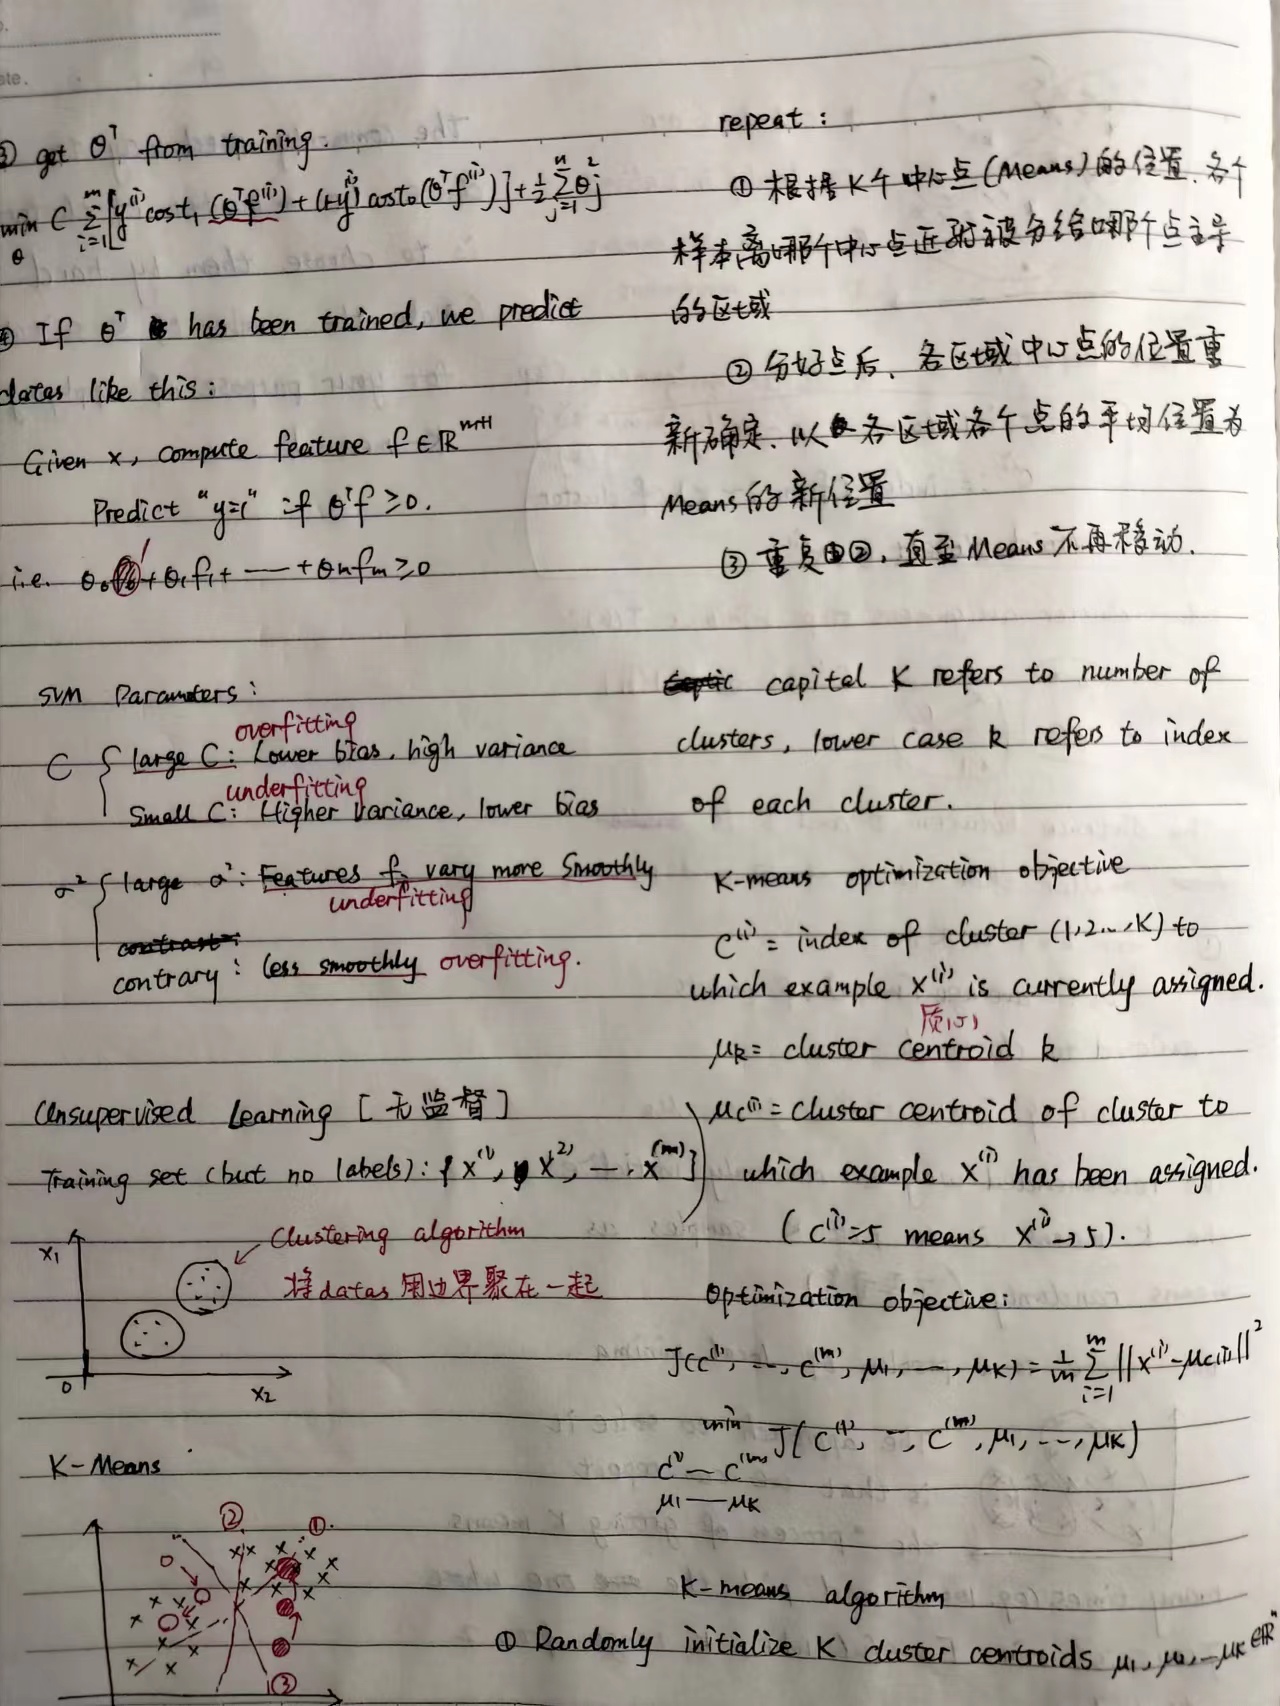 ate.
③ get θᵀ from training:
min C Σ [y⁽ⁱ⁾cost₁(θᵀf⁽ⁱ⁾) + (1-y⁽ⁱ⁾)cost₀(θᵀf⁽ⁱ⁾)] + ½ Σ θj²
θ i=1 m j=1 n
④ If θᵀ has been trained, we predict
datas like this:
Given x, compute feature f∈ℝᵐ⁺¹
Predict "y=1" if θᵀf ≥0.
i.e. θ₀ 1 + θ₁f₁ + — + θnfm ≥0
SVM Parameters:
overfitting
C { large C: Lower bias, high variance
underfitting
Small C: Higher variance, lower bias
σ² { large σ²: Features fi vary more Smoothly
underfitting
contrast:
contrary: less smoothly overfitting.
Unsupervised Learning [无监督]
Training set (but no labels): {x⁽¹⁾, x⁽²⁾, —, x⁽ᵐ⁾}
x₁
Clustering algorithm
将datas用边界聚在一起
0
x₂
K-Means
② ①
③
repeat:
① 根据K个中心点(Means)的位置、各个
样本离哪个中心点近就被分给哪个点主导
的区域
② 分好点后、各区域中心点的位置重
新确定、以各区域各个点的平均位置为
Means的新位置
③ 重复①②, 直至Means不再移动.
capital K refers to number of
clusters, lower case k refers to index
of each cluster.
K-means optimization objective
c⁽ⁱ⁾ = index of cluster (1,2...,K) to
which example x⁽ⁱ⁾ is currently assigned.
质心
μk = cluster centroid k
μc⁽ⁱ⁾ = cluster centroid of cluster to
which example x⁽ⁱ⁾ has been assigned.
(c⁽ⁱ⁾=5 means x⁽ⁱ⁾→5).
Optimization objective:
J(c⁽¹⁾, —, c⁽ᵐ⁾, μ₁, —, μK) = 1/m Σ ||x⁽ⁱ⁾-μc⁽ⁱ⁾||²
i=1 m
min J(c⁽¹⁾, —, c⁽ᵐ⁾, μ₁, ..., μK)
c⁽¹⁾ — c⁽ᵐ⁾
μ₁ — μK
K-means algorithm
① Randomly initialize K cluster centroids μ₁, μ₂, — μK ∈ℝⁿ